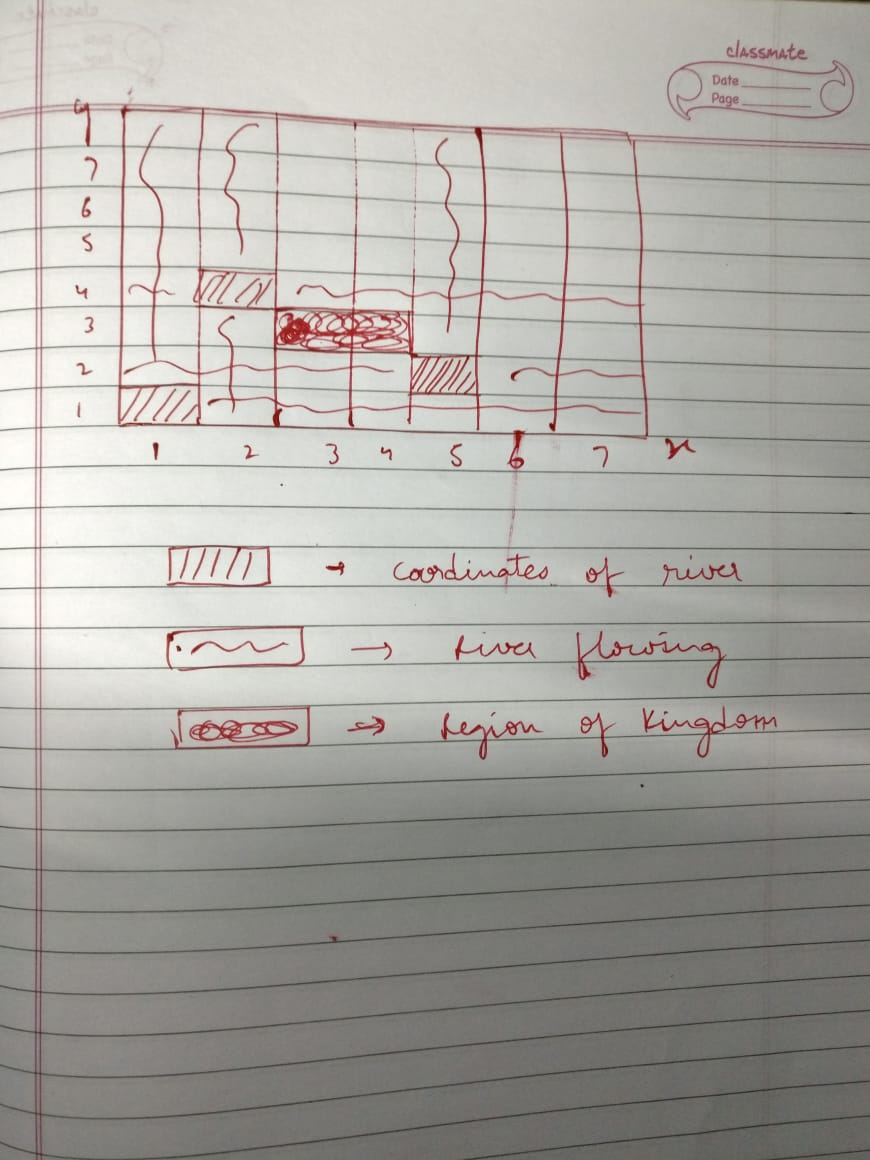 classmate
Date
Page
y
7
6
5
4
3
2
1
1 2 3 4 5 6 7 x
→ coordinates of river
→ river flowing
⇒ region of Kingdom